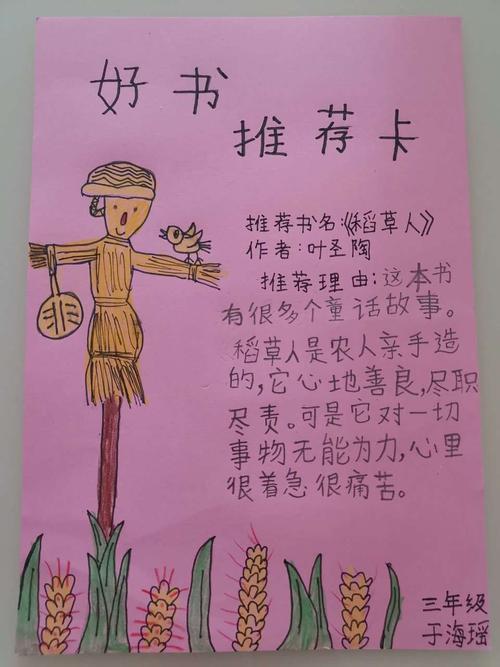 好书
推荐卡
推荐书名:《稻草人》
作者:叶圣陶
推荐理由:这本书
有很多个童话故事。
稻草人是农人亲手造
的,它心地善良,尽职
尽责。可是它对一切
事物无能为力,心里
很着急很痛苦。
三年级
于海瑶